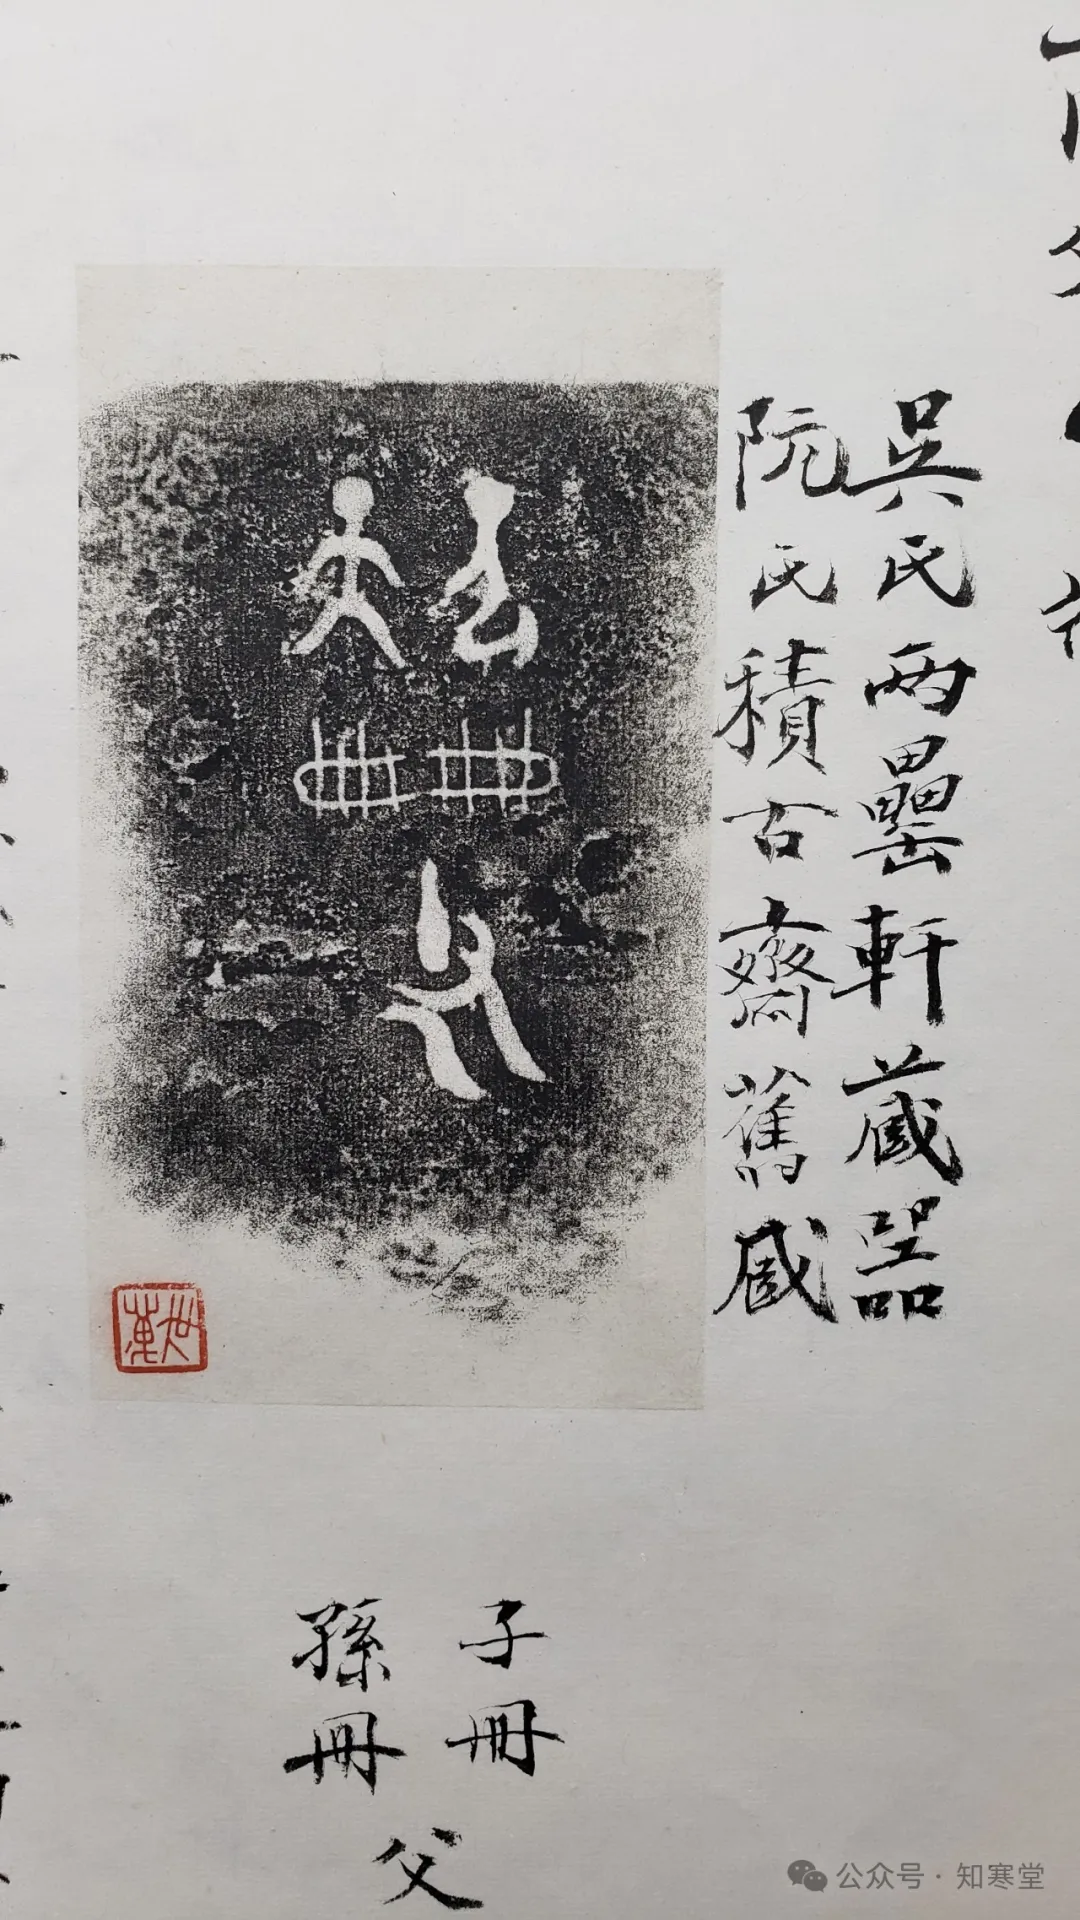 吳氏兩罍軒藏器
阮氏積古齋舊藏
子冊
孫冊
父
公众号·知寒堂